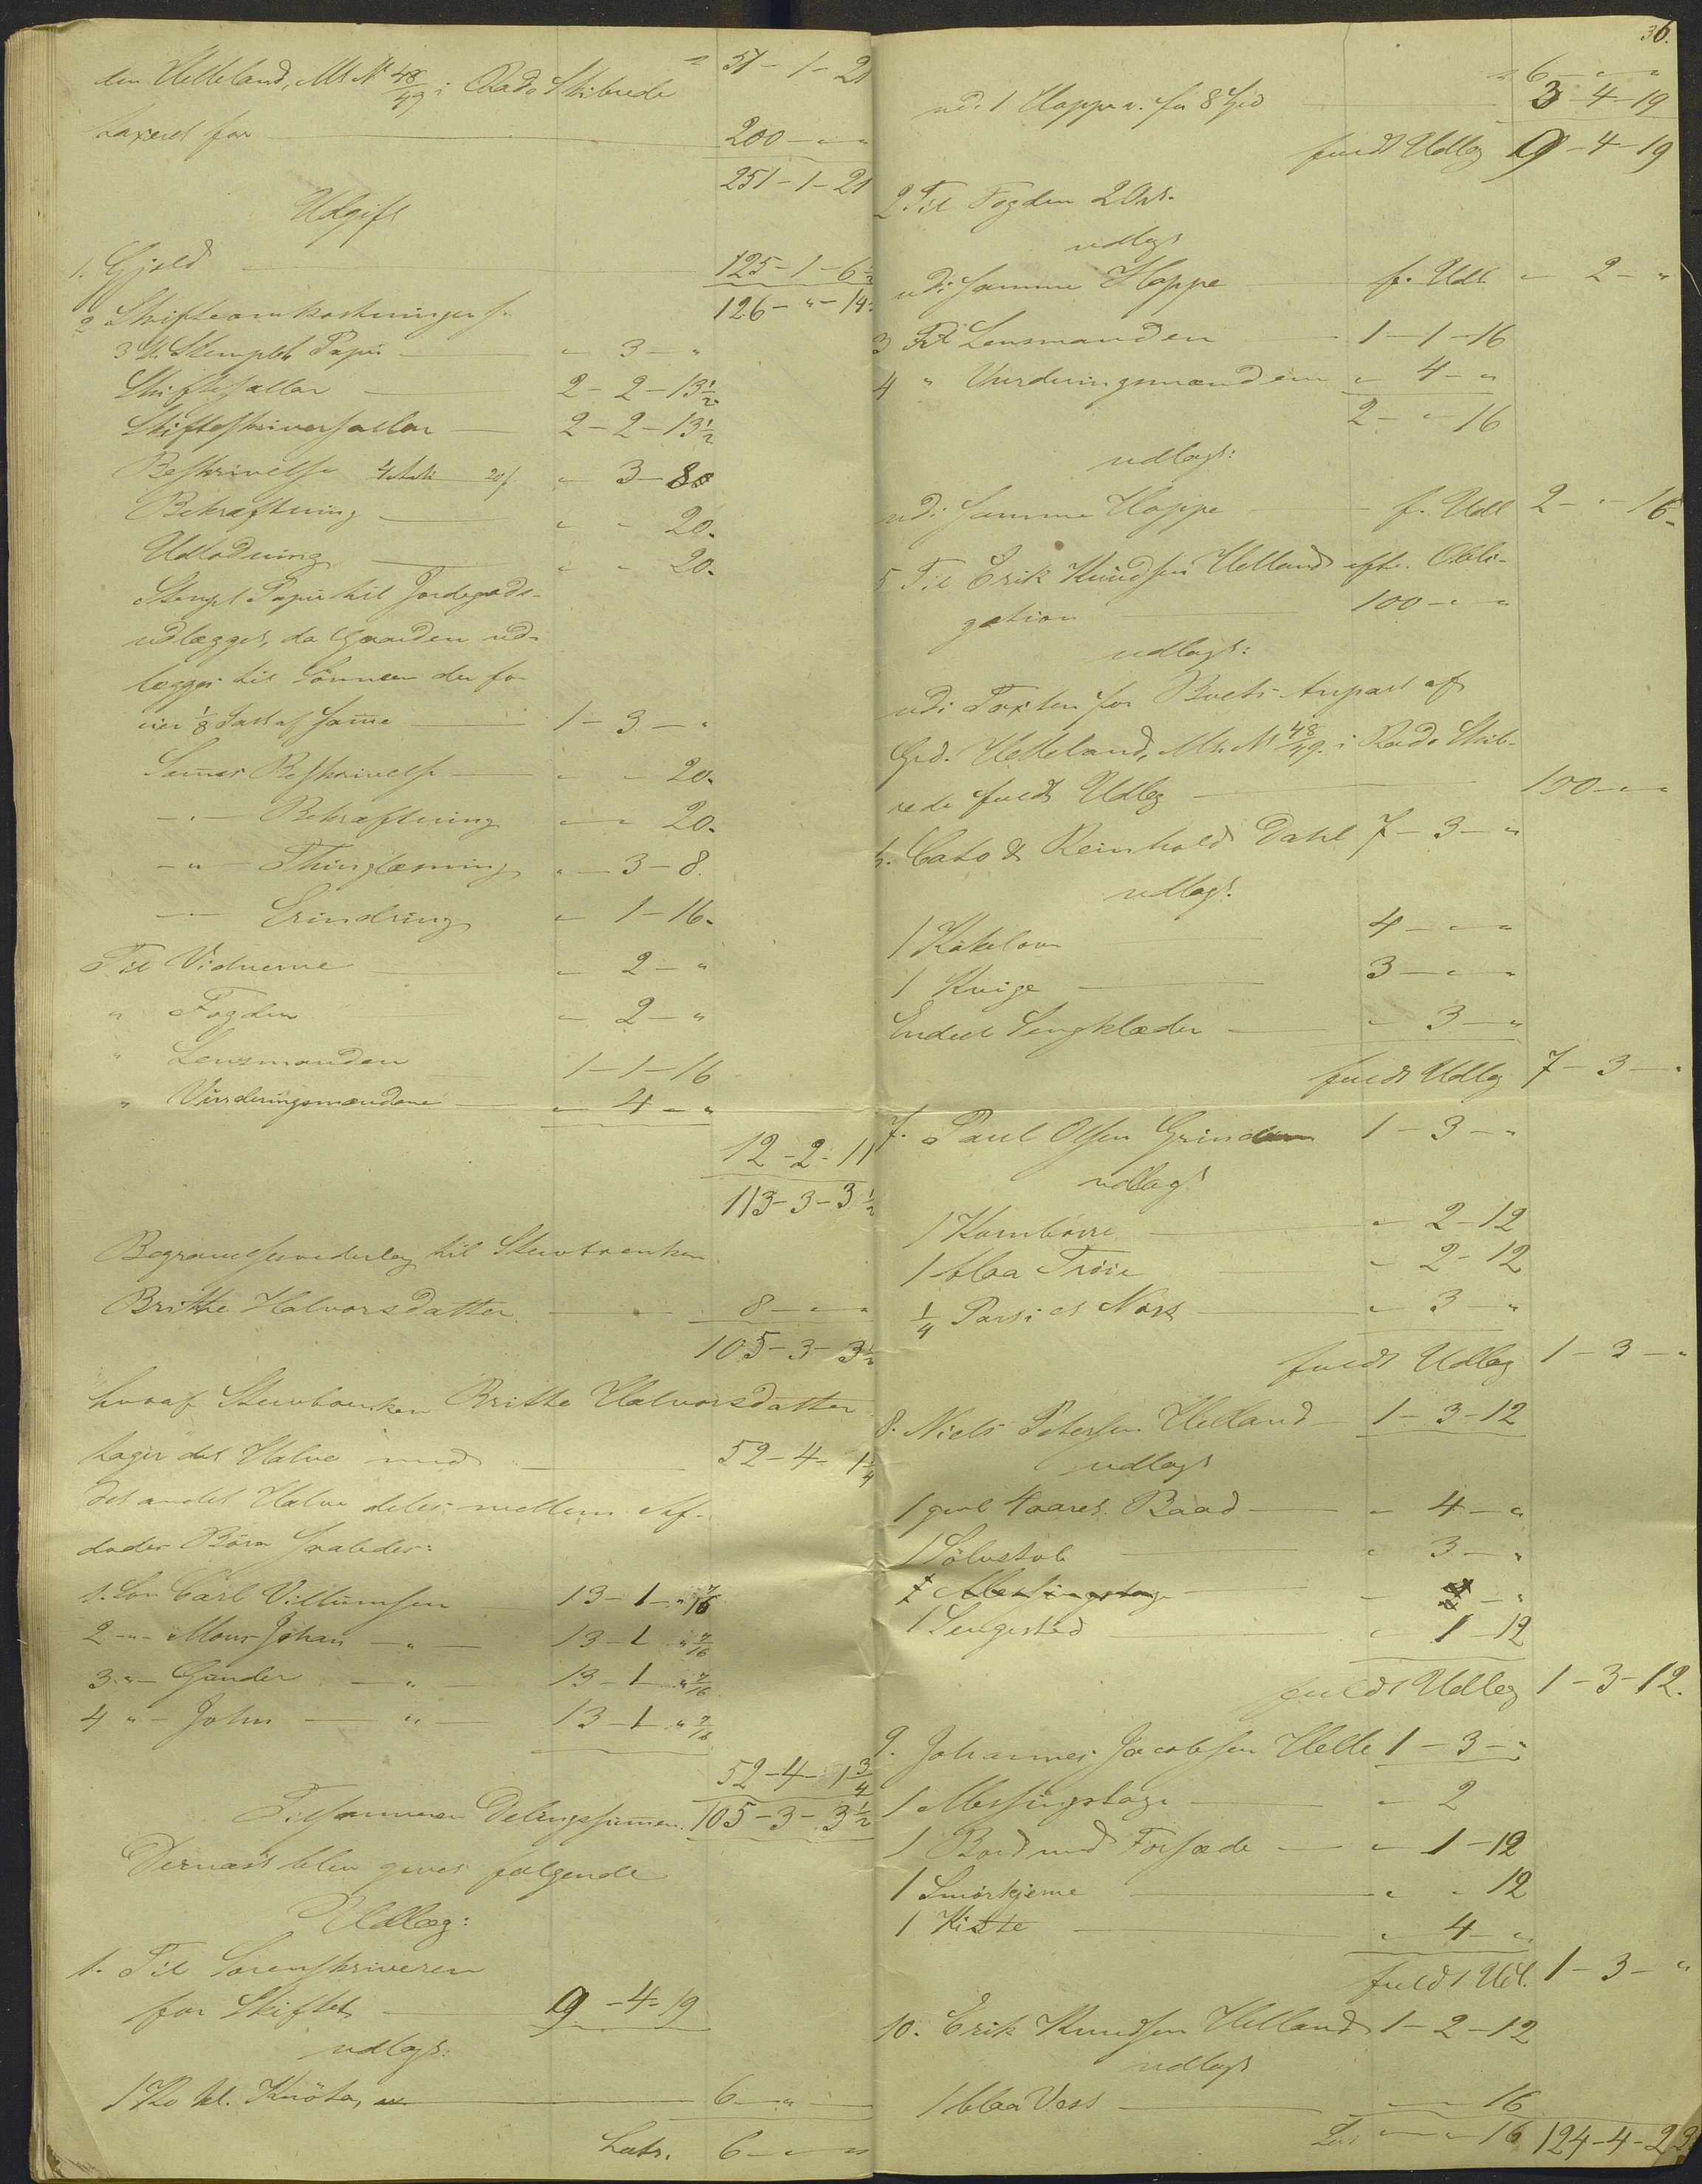 den Helleland, Mt. N° 48/49 i Rado Skibrede " 51 - 1 - 21
Taxeret for 200 - " - "
251 - 1 - 21
Udgift
1. Gjeld 125 - 1 - 6 1/2
126 - " - 14 1/2
2 Skifteomkostninger s.
3 St. Stemplet Papir " - 3 - "
Skiftesallar 2 - 2 - 13 1/2
Skifteskriversallar 2 - 2 - 13 1/2
Beskrivelse 4 Ark 20 s " - 3 - 8
Bekræftning " - " 20.
Udlodning " - " 20.
Stempl. Papir til Jordegods-
udlægget, da Gaarden ud-
lægges til Sønnen der for
eier 1/8 Part af samme 1 - 3 - "
Sammes Beskrivelse " - " 20.
- " - Bekræftning " - " 20.
- " - Thinglæsning " - 3 - 8.
- " - Erindring " - 1 - 16.
Til Vidnerne " - 2 - "
" Fogden " - 2 - "
" Lensmanden 1 - 1 - 16
" Vurderingsmændene " - 4 - "
12 - 2 - 11
113 - 3 - 3 1/2
Begravelsesvederlag til Stervboenken
Brithe Halvorsdatter 8 - " - "
105 - 3 - 3 1/2
hvoraf Stervboenken Britte Halvorsdatter
tager det Halve med 52 - 4 - 1 3/4
det andet Halve deles mellem Af-
dødes Børn saaledes:
1. Søn Carl Villumsen 13 - 1 - " 7/16
2 - " - Mons Johan - " - 13 - 1 " 7/16
3 - " - Gunder - " - 13 - 1 " 7/16
4 " - John - " - 13 - 1 - " 7/16
52 - 4 - 1 3/4
Tilsammen Delingssummen 105 - 3 - 3 1/2
Dernæst blev gjort følgende
Udlæg:
1. Til Sorenskriveren
for Skiftet 9 - 4 - 19
udlagt:
1 Ko kl. Knöta, 6 - " - "
Latr. 6 - " - "
36.
" 6 - " - "
udi 1 Hoppe v. for 8 Spd 3 - 4 - 19
fuldt Udlæg 9 - 4 - 19
2 Til Fogden 2 Ort.
udlagt
udi samme Hoppe f. Udl. " - 2 - "
3 Til Lensmanden 1 - 1 - 16
4 " Vurderingsmændene " - 4 - "
2 - " - 16
udlagt:
udi samme Hoppe f. Udl 2 - " - 16 -
5 Til Erik Knudsen Helland efter Obli-
gation 100 - " - "
udlagt:
udi Taxten for Boets Anpart af
Grd. Helleland, Mt. N° 48/49. i Rado Skib-
rede fuldt Udlæg 100 - " - "
6. Cato & Reinhold Dahl 7 - 3 - "
udlagt.
1 Kakelovn 4 - " - "
1 Kvige 3 - " - "
Endeel Sengklæder " - 3 - "
fuldt Udlæg 7 - 3 - "
7. Paul Olsen Grind 1 - 3 - "
udlagt
1 Kornbörre " - 2 - 12
1 blaa Tröie " - 2 - 12
1/4 Part i et Nost " - 3 - "
fuldt Udlæg 1 - 3 - "
8. Niels Petersen Helland 1 - 3 - 12
udlagt
1 gml 4 aaret Baad " - 4 - "
1 Sölvstob " - 3 - "
1 Messingstage
1 Sengested " - 1 - 12
fuldt Udlæg 1 - 3 - 12.
9. Johannes Jacobsen Helle 1 - 3 - "
1 Messingstage " - 2
1 Bord med Forsæde " - 1 - 12
1 Smörkjerne " - " 12
1 Kiste " - 4 - "
fuldt Udl. 1 - 3 - "
10. Erik Knudsen Helland 1 - 2 - 12
udlagt
1 blaa Vest " - 16
Lat " - " - 16 124 - 4 - 23